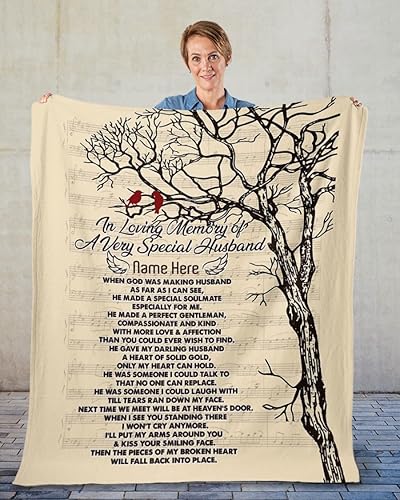 In Loving Memory of
A Very Special Husband
Name Here
WHEN GOD WAS MAKING HUSBAND
AS FAR AS I CAN SEE,
HE MADE A SPECIAL SOULMATE
ESPECIALLY FOR ME.
HE MADE A PERFECT GENTLEMAN,
COMPASSIONATE AND KIND
WITH MORE LOVE & AFFECTION
THAN YOU COULD EVER WISH TO FIND.
HE GAVE MY DARLING HUSBAND
A HEART OF SOLID GOLD,
ONLY MY HEART CAN HOLD.
HE WAS SOMEONE I COULD TALK TO
THAT NO ONE CAN REPLACE.
HE WAS SOMEONE I COULD LAUGH WITH
TILL TEARS RAN DOWN MY FACE.
NEXT TIME WE MEET WILL BE AT HEAVEN'S DOOR.
WHEN I SEE YOU STANDING THERE
I WON'T CRY ANYMORE.
I'LL PUT MY ARMS AROUND YOU
& KISS YOUR SMILING FACE.
THEN THE PIECES OF MY BROKEN HEART
WILL FALL BACK INTO PLACE.